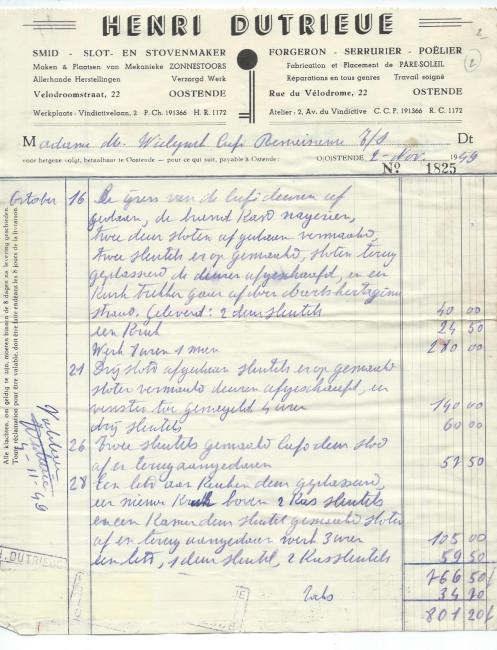 HENRI DUTRIEUE
SMID - SLOT- EN STOVENMAKER
Maken & Plaatsen van Mekanieke ZONNESTOORS
Allerhande Herstellingen Verzorgd Werk
Velodroomstraat, 22 OOSTENDE
Werkplaats: Vindictivelaan, 2 P. Ch. 191366 H. R. 1172
FORGERON - SERRURIER - POÊLIER
Fabrication et Placement de PARE-SOLEIL
Réparations en tous genres Travail soigné
Rue du Vélodrome, 22 OSTENDE
Atelier: 2, Av. du Vindictive C. C. P. 191366 R. C. 1172
2
2
Madame Dt
voor hetgene volgt, betaalbaar te Oostende — pour ce qui suit, payable à Ostende: O/OSTENDE 2 - Nov. 1949
No 1825
October 16 De van de deuren af
gedaan, de
twee deur sloten afgedaan vermaakt,
twee sleutels er op gemaakt, sloten terug
geplasseerd de deuren afgeschaafd, en een
straat. Geleverd: 2 deur sleutels 40 00
een Kruk 24 50
Werk 7 uren 1 man 280 00
21 Drij slod afgedaan sleutels er op gemaakt
sloten vermaakt deuren afgeschaafd, en
4 uren 140 00
drij sleutels 60 00
26 Twee sleutels gemaakt slod
af en terug aangedaan 57 50
28 Een aan Keuken deur geplasseerd,
een nieuwe Kruk boven 2 Kas sleutels
en een Kamer deur sleutel gemaakt sloten
af en terug aangedaan werk 3 uren 105 00
een 1 deur sleutel, 2 Kas sleutels 59 50
766 50
34 70
801 20
Alle klachten, om geldig te zijn, moeten binnen de 8 dagen na levering geschieden.
Toute réclamation pour être valable, doit être faite endéans les 8 jours de la livraison.
4 11-49
H. DUTRIEUE